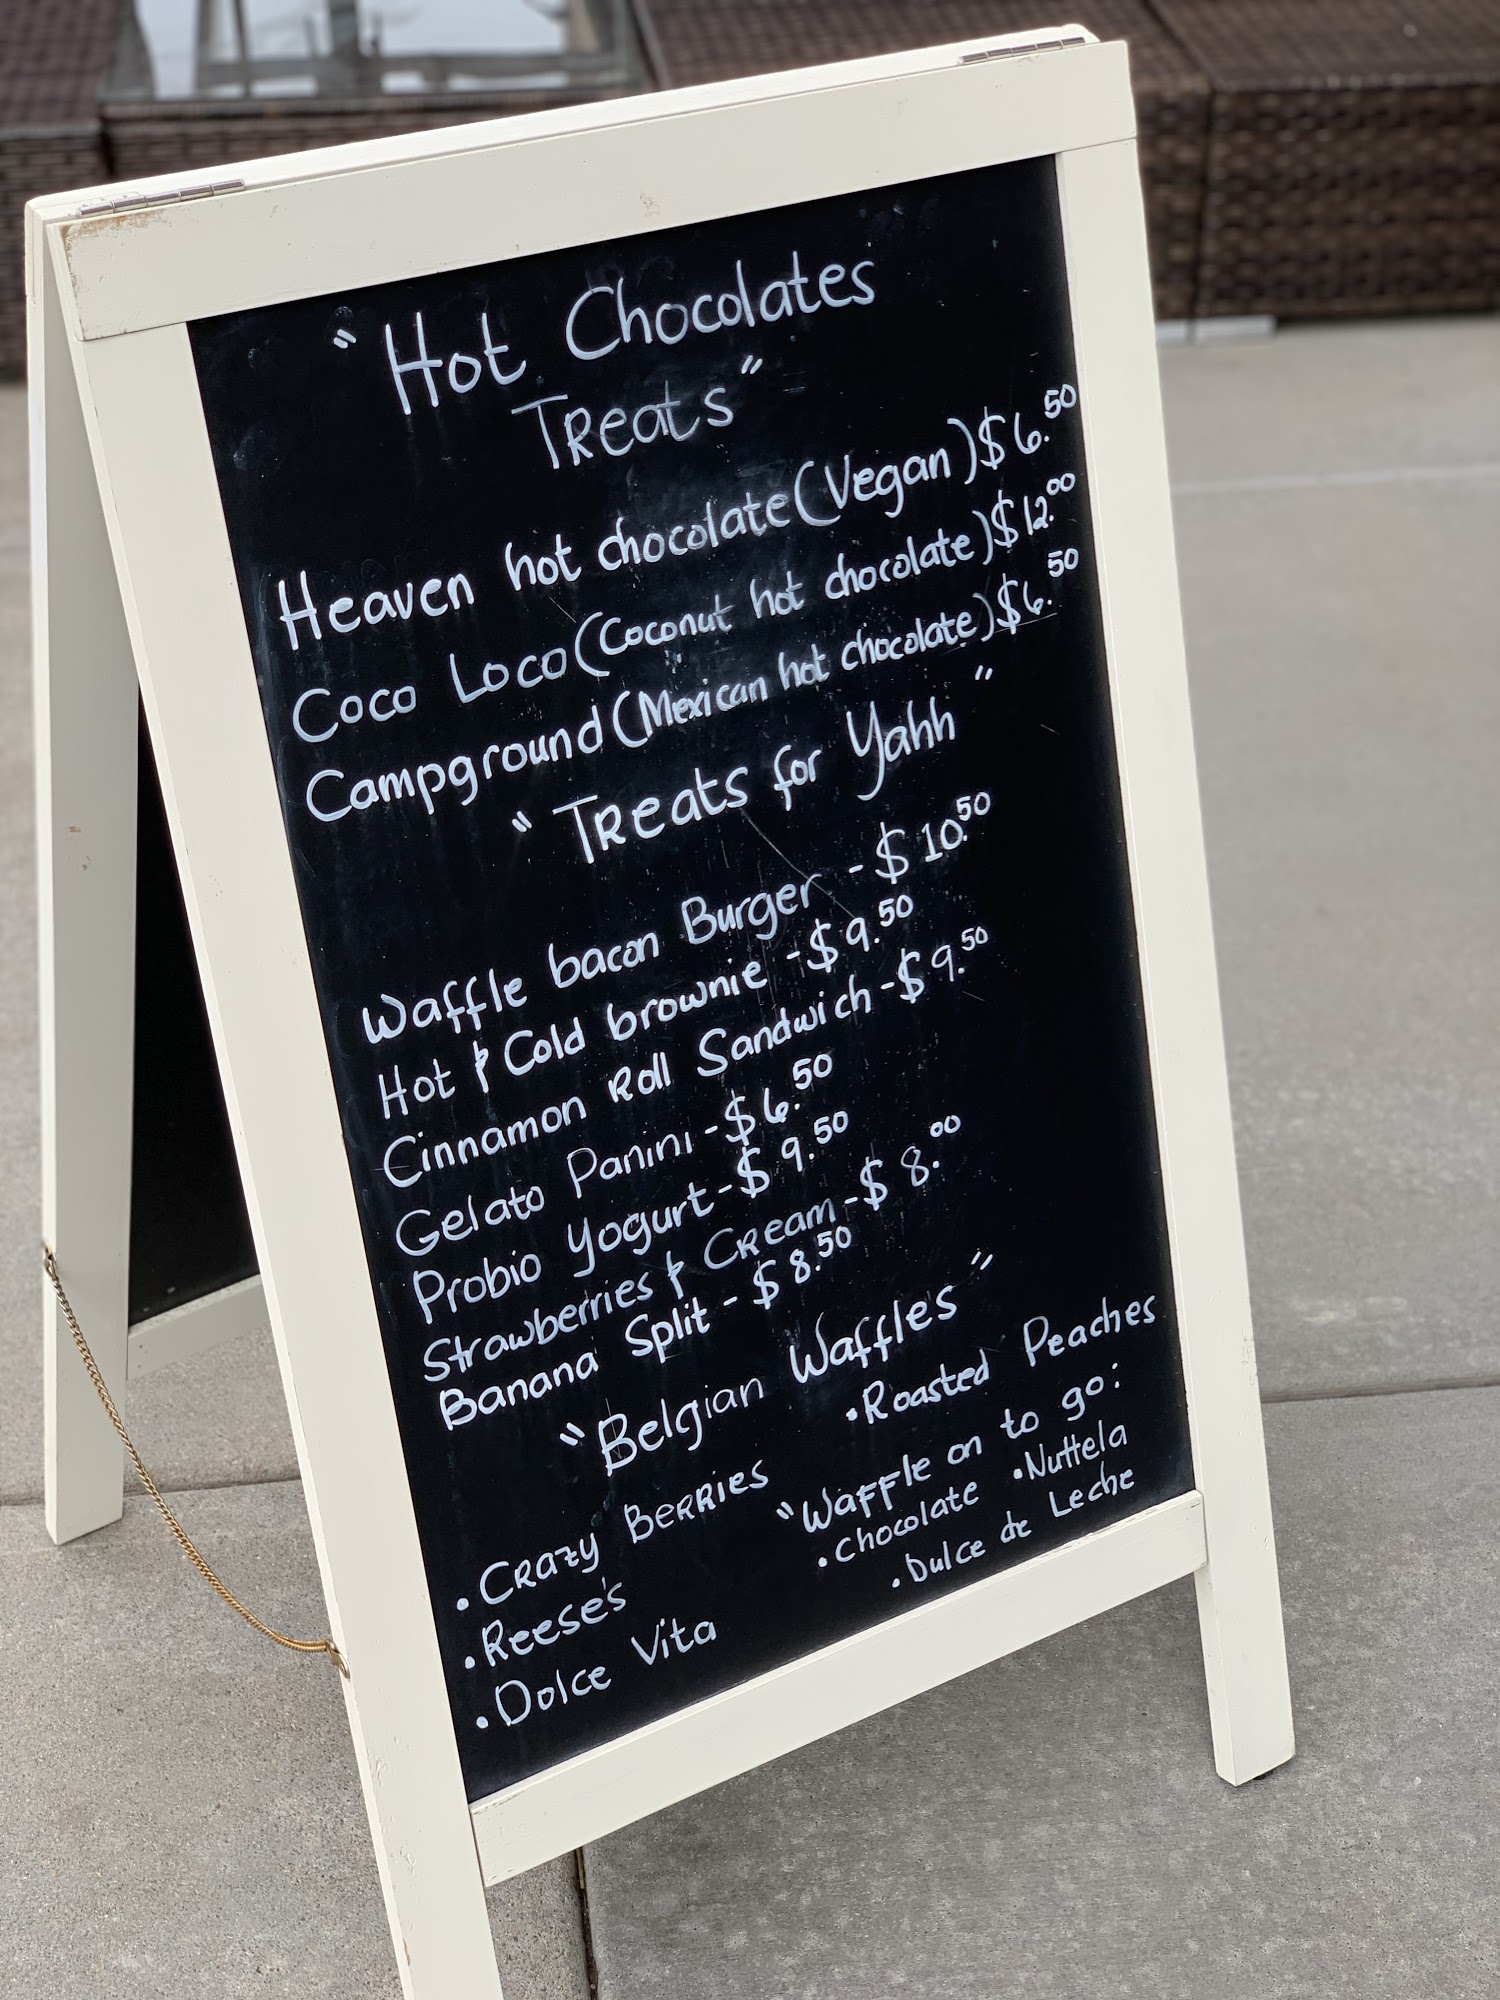 "Hot Chocolates
Treats"
Heaven hot chocolate (Vegan) $6.50
Coco Loco (Coconut hot chocolate) $12.00
Campground (Mexican hot chocolate) $6.50
"Treats for Yahh"
Waffle bacon Burger - $10.50
Hot & Cold brownie - $9.50
Cinnamon Roll Sandwich - $9.50
Gelato Panini - $6.50
Probio Yogurt - $9.50
Strawberries & Cream - $8.00
Banana Split - $8.50
"Belgian Waffles"
• Crazy Berries
• Reese's
• Dolce Vita
• Roasted Peaches
"Waffle on to go:
• Chocolate • Nuttela
• Dulce de Leche